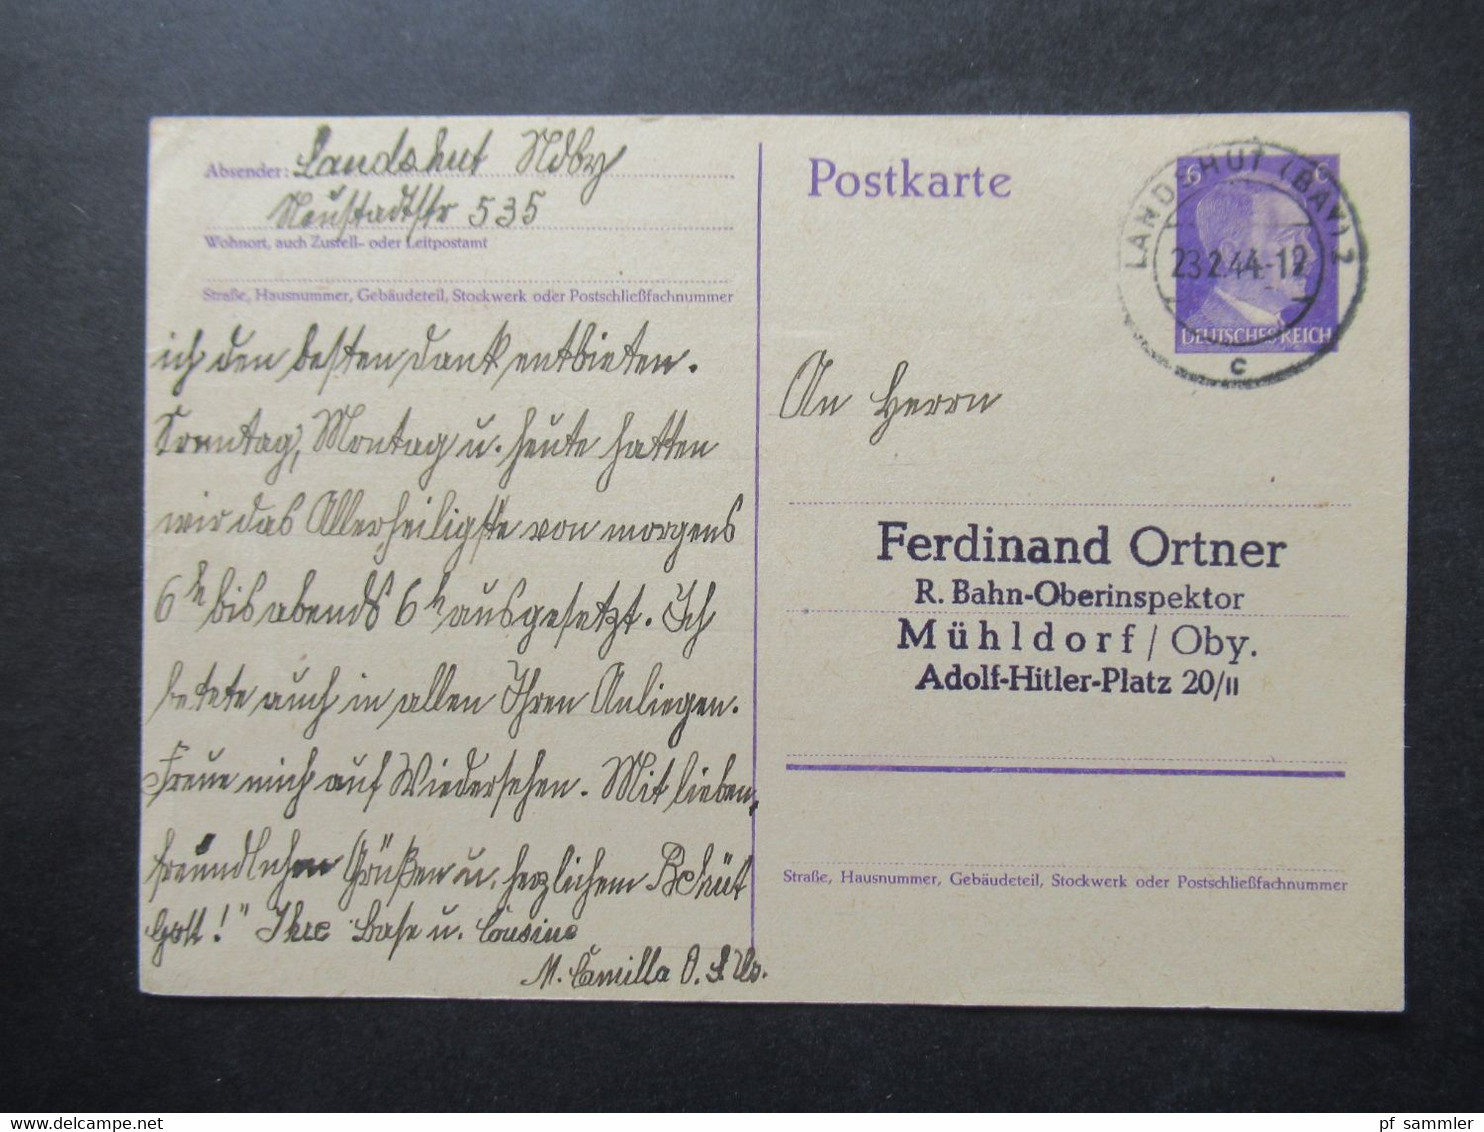 Absender: Landshut Ndby
Neustadtstr 535
Wohnort, auch Zustell- oder Leitpostamt
Straße, Hausnummer, Gebäudeteil, Stockwerk oder Postschließfachnummer
ich den besten Dank entbieten.
Sonntag, Montag u. heute hatten
wir das Allerheiligste von morgens
6h bis abends 6h ausgesetzt. Ich
betete auch in allen Ihren Anliegen.
Freue mich auf Wiedersehen. Mit lieben,
freundlichen Grüßen u. herzlichem Behüt
Gott!" Ihre Base u. Cousine
M. Camilla O. S. Urs.
Postkarte
6
DEUTSCHES REICH
LANDSHUT (BAY) 2
23.2.44.-12
c
An Herrn
Ferdinand Ortner
R. Bahn-Oberinspektor
Mühldorf / Oby.
Adolf-Hitler-Platz 20/II
Straße, Hausnummer, Gebäudeteil, Stockwerk oder Postschließfachnummer
www.delcampe.net
pf_sammler